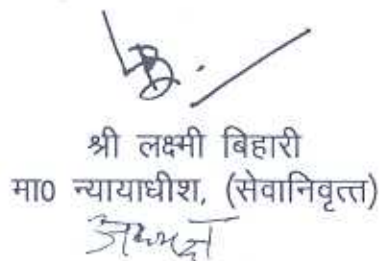 श्री लक्ष्मी बिहारी
मा0 न्यायाधीश, (सेवानिवृत्त)
अध्यक्ष